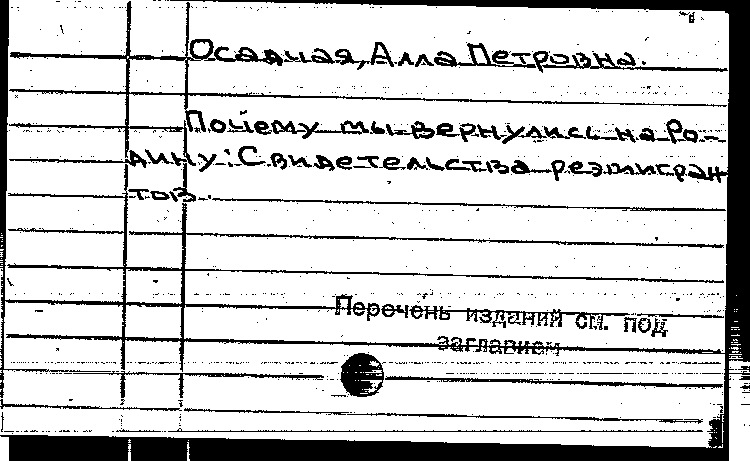 Осадчая, Алла Петровна.
Почему мы вернулись на Ро-
дину: Свидетельства реэмигран
тов.
Перечень изданий см. под
заглавием